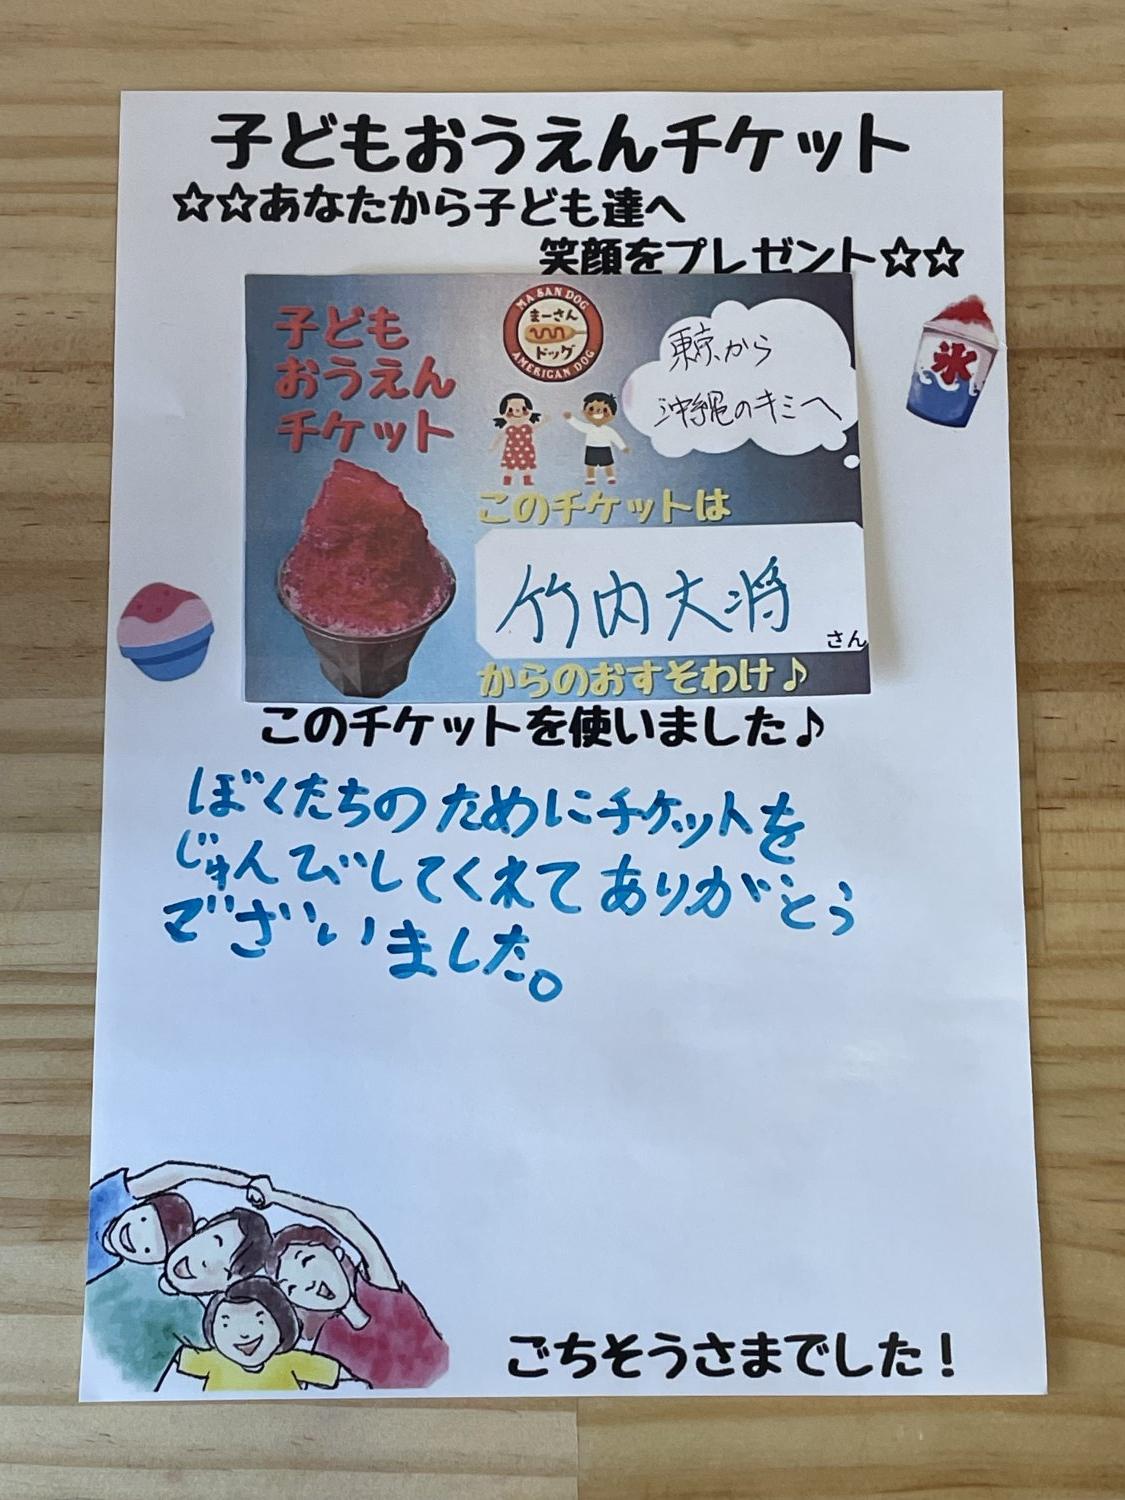 子どもおうえんチケット
☆☆あなたから子ども達へ
笑顔をプレゼント☆☆
子ども
おうえん
チケット
MA SAN DOG
まーさん
ドッグ
AMERICAN DOG
東京から
沖縄のキミへ
氷
このチケットは
竹内大将
さん
からのおすそわけ♪
このチケットを使いました♪
ぼくたちのためにチケットを
じゅんびしてくれてありがとう
ございました。
ごちそうさまでした！